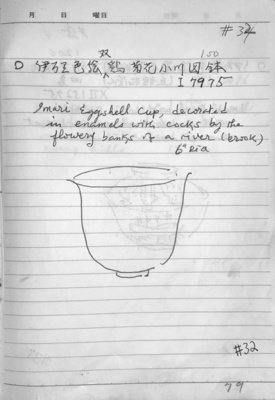 月 日 曜日
#34
双 150
○ 伊万里色絵鶏菊花小川図鉢
I 7975
Imari Eggshell Cup, decorated
in enamels with cocks by the
flowery banks of a river (brook)
6" Dia
#32
79